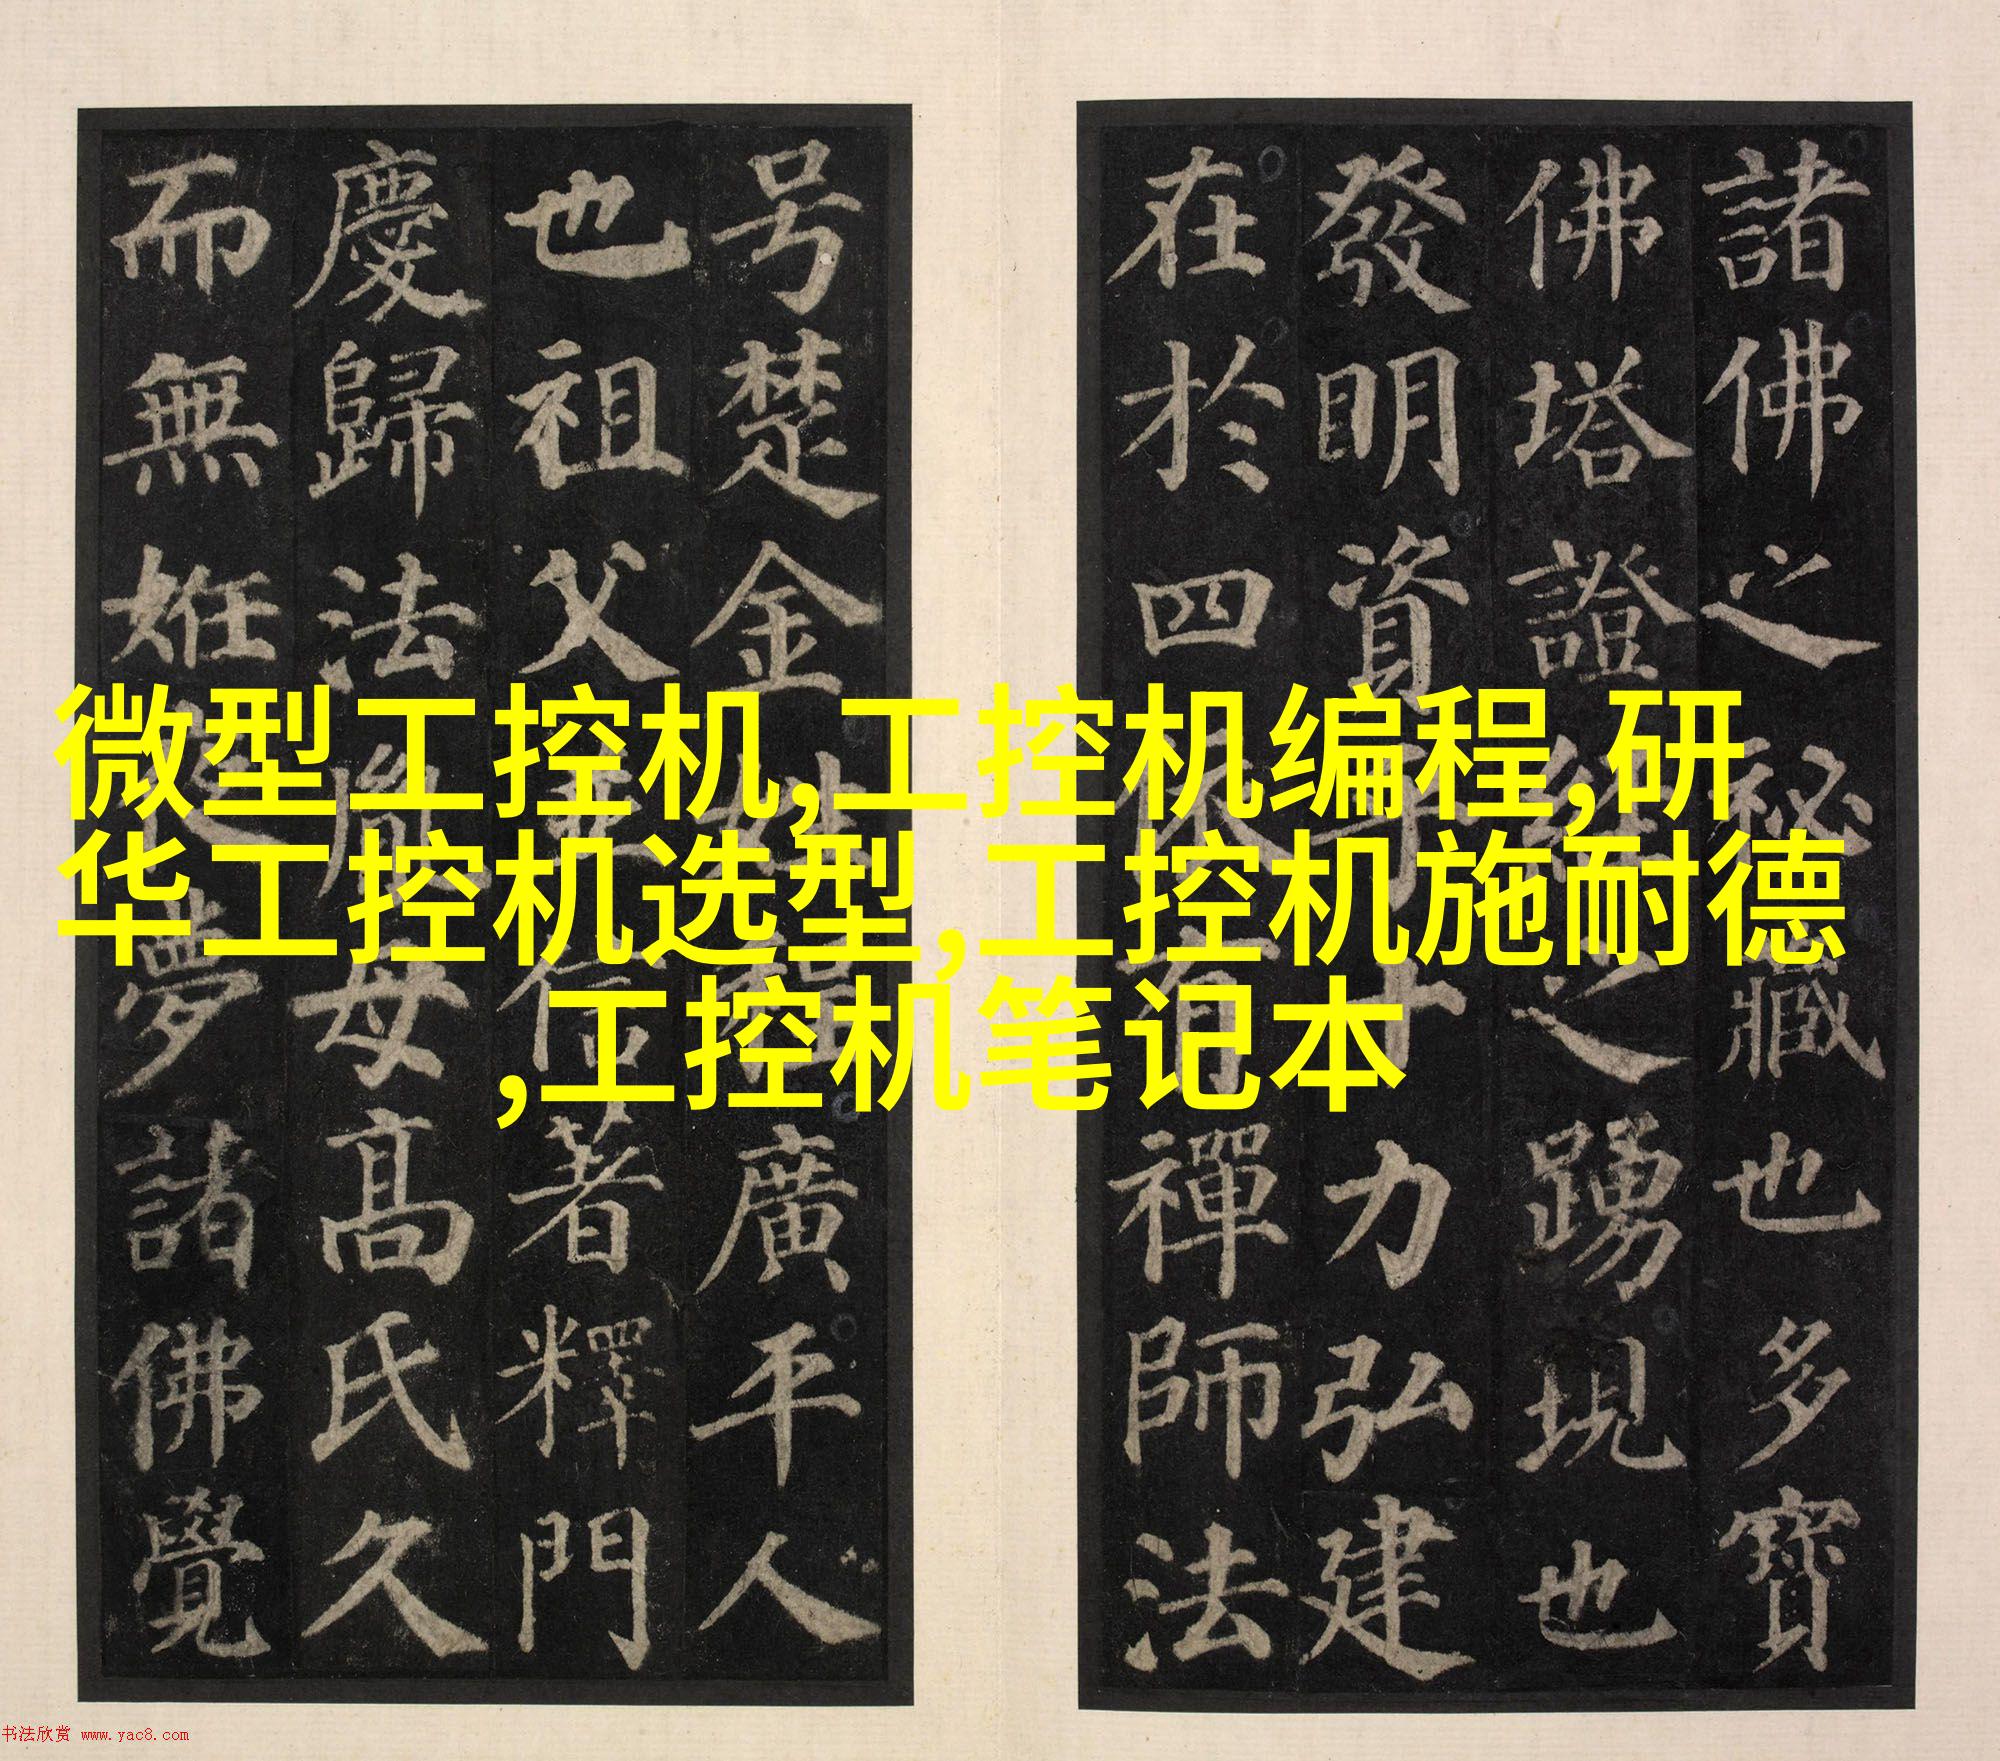 諸佛之祕藏也多寶
佛塔證經之踴現也
發明資乎十力弘建
在於四依有禪師法
号楚金姓程廣平人
也祖父並信著釋門
慶歸法胤母髙氏久
而無姙夜夢諸佛覺
微型工控机,工控机编程,研
华工控机选型,工控机施耐德
,工控机笔记本
书法欣赏 www.yac8.com